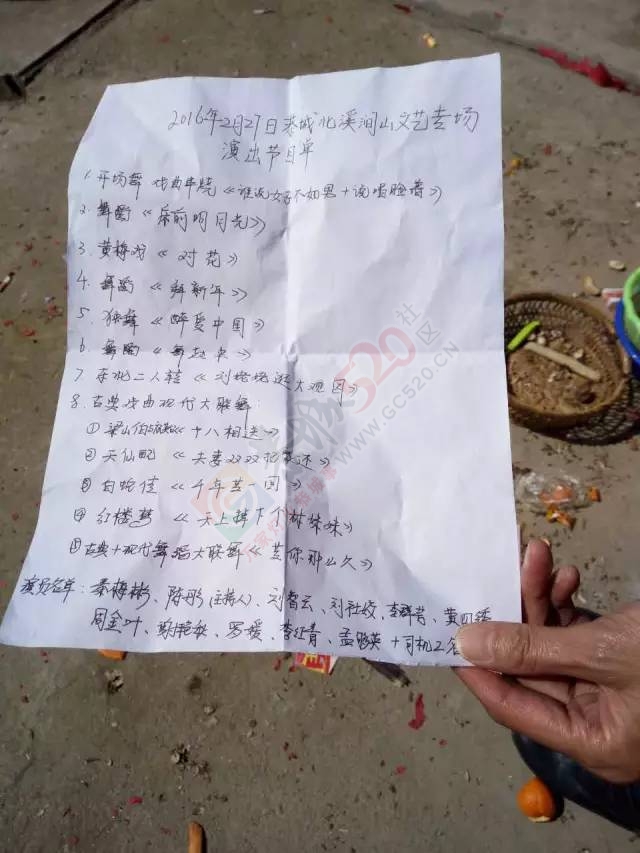 2016年2月27日恭城北溪涧山文艺专场
演出节目单
1. 开场舞 戏曲串烧《谁说女子不如男+说唱脸谱》
2. 舞蹈《床前明月光》
3. 黄梅戏《对花》
4. 舞蹈《拜新年》
5. 独舞《醉爱中国》
6. 舞蹈《舞起来》
7. 东北二人转《刘姥姥逛大观园》
8. 古典戏曲现代大联舞:
① 梁山伯与祝《十八相送》
② 天仙配《夫妻双双把家还》
③ 白蛇传《千年等一回》
④ 红楼梦《天上掉下个林妹妹》
⑤ 古典+现代舞蹈大联舞《等你那么久》
演员名单:秦梅彬、陈彤(主持人)、刘智云、刘社姣、李群芳、黄
周金叶、 罗媛、李红青、孟 英+司机2名
520社区
WWW.GC520.CN